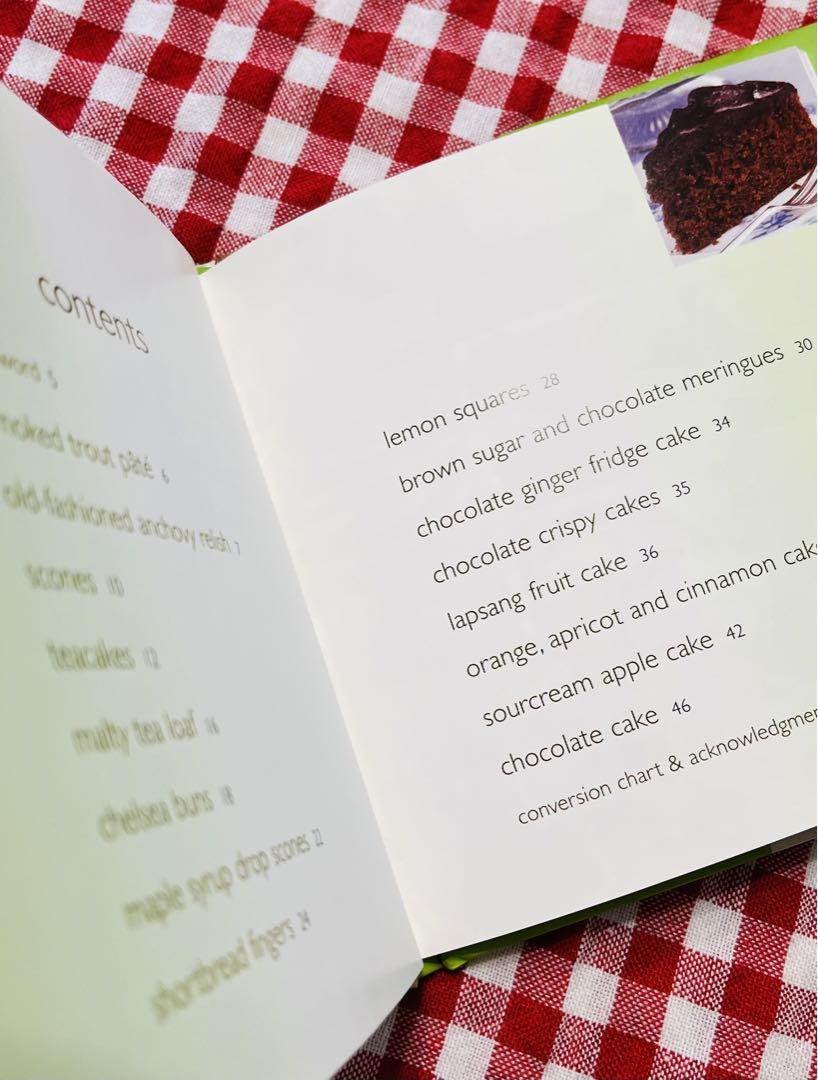 contents
word 5
moked trout pâté 6
old-fashioned anchovy relish 7
scones 10
teacakes 12
malty tea loaf 16
chelsea buns 18
maple syrup drop scones 22
shortbread fingers 24
lemon squares 28
brown sugar and chocolate meringues 30
chocolate ginger fridge cake 34
chocolate crispy cakes 35
lapsang fruit cake 36
orange, apricot and cinnamon cak
sourcream apple cake 42
chocolate cake 46
conversion chart & acknowledgmen